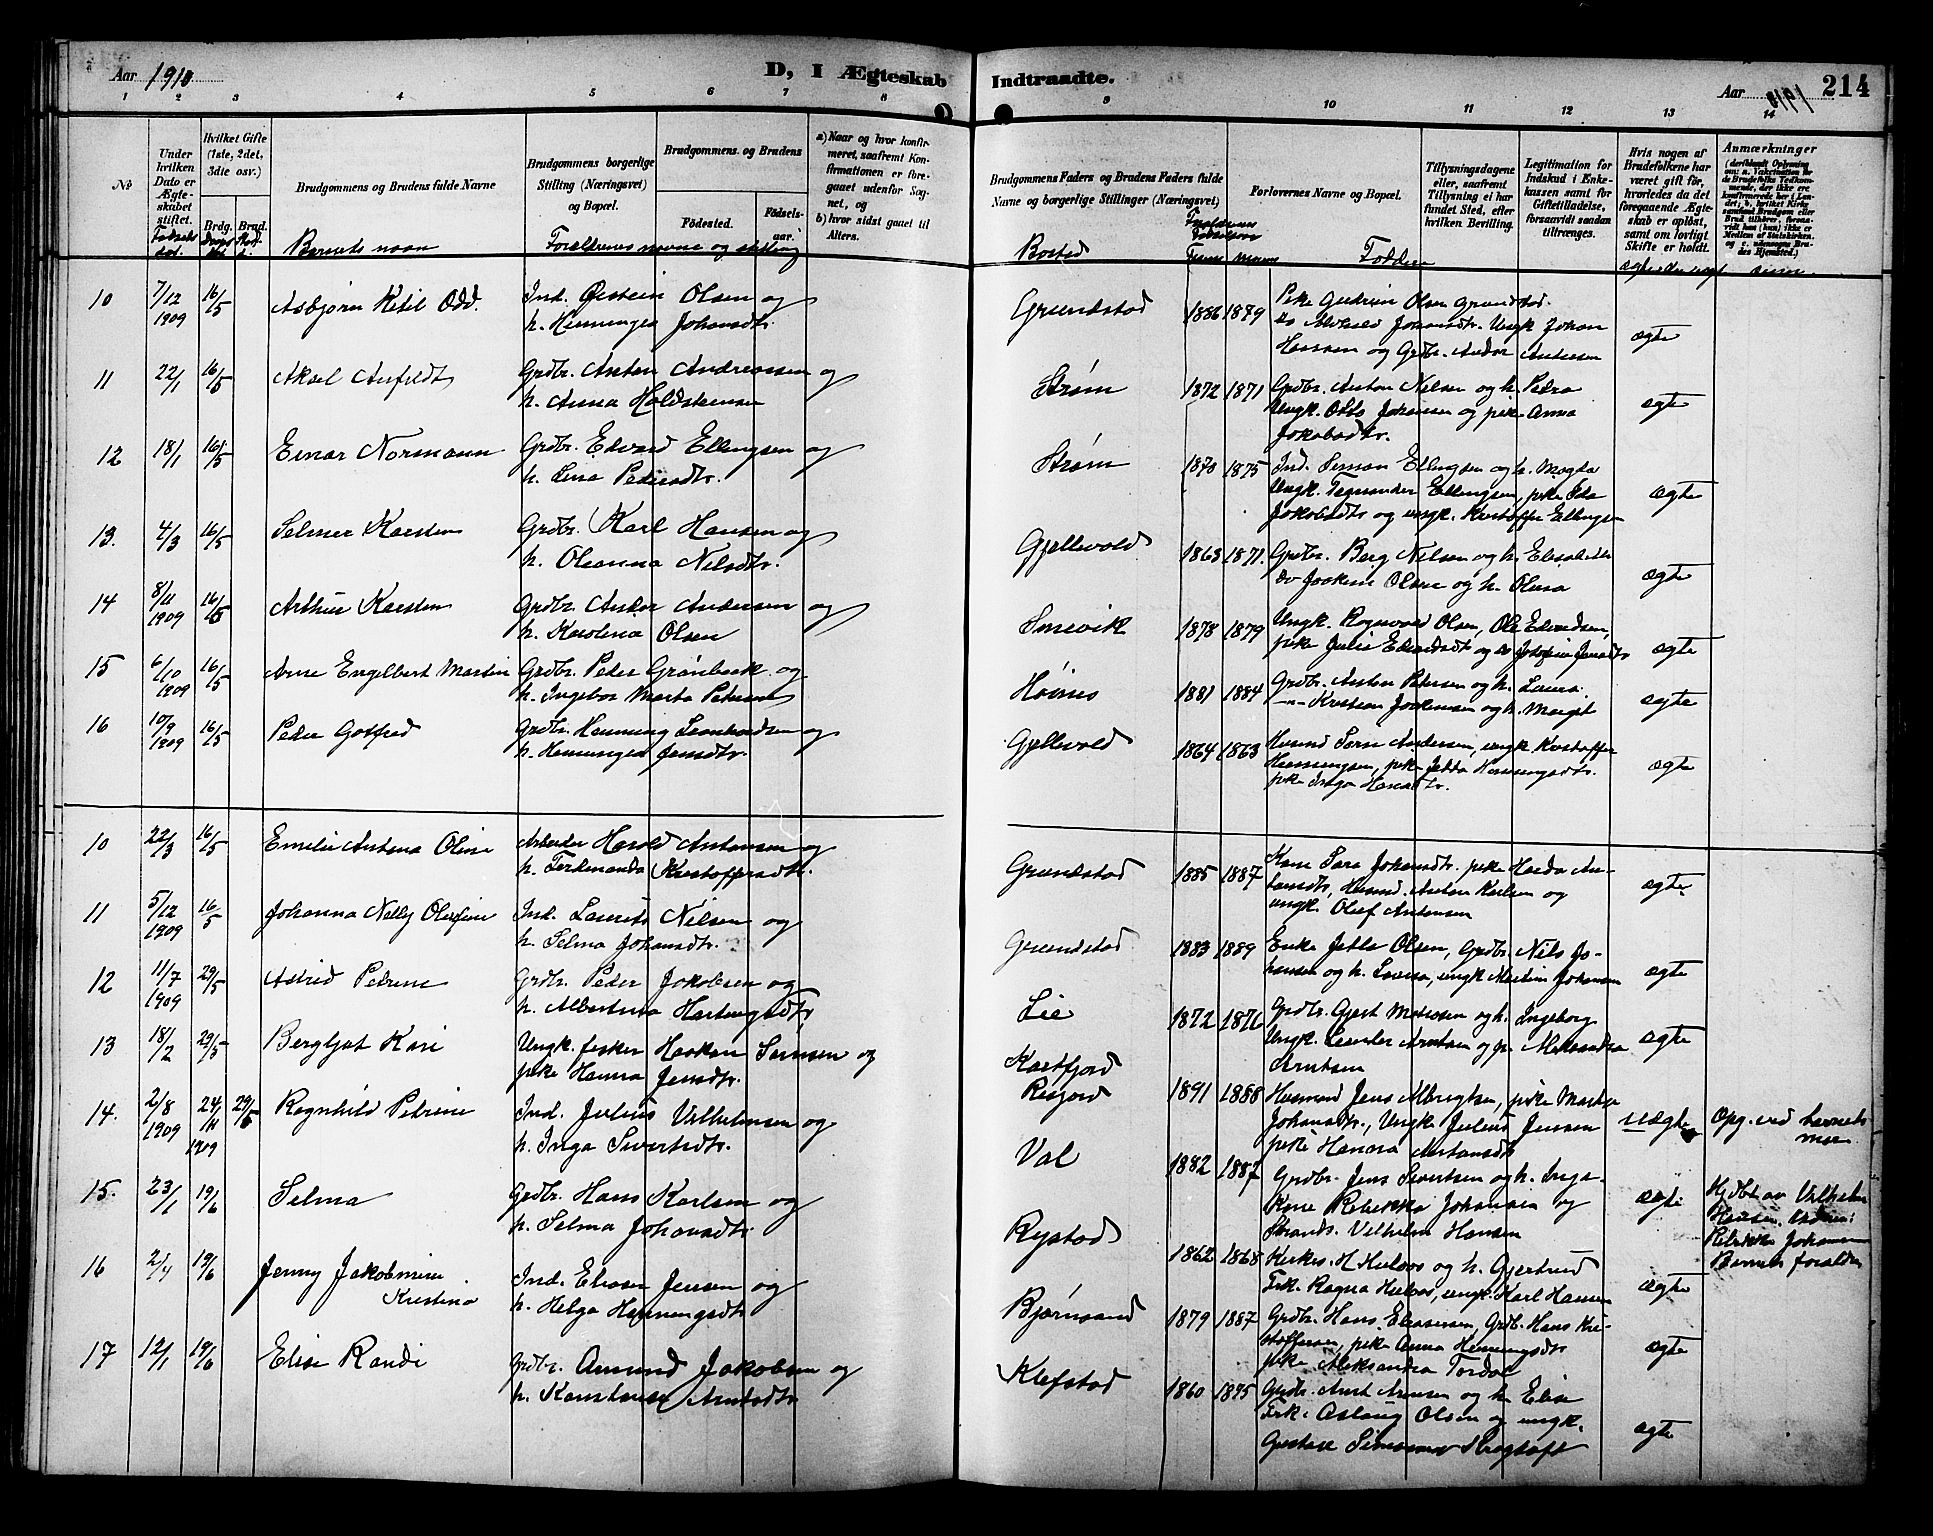 Aar 1910
D, I Ægteskab
Indtraadte.
Aar 1910
214
1 2 3 4 5 6 7 8
9 10 11 12 13 14
№
Under hvilken Dato er Ægteskabet stiftet.
Hvilket Gifte (1ste, 2det, 3die osv.)
Brdg. Brud.
Brudgommens og Brudens fulde Navne
Brudgommens borgerlige Stilling (Næringsvei) og Bopæl.
Brudgommens og Brudens
Fødested.
Fødselsaar.
a) Naar og hvor konfirmeret, saafremt Konfirmationen er foregaaet udenfor Sognet, og
b) hvor sidst gaaet til Alters.
Brudgommens Faders og Brudens Faders fulde Navne og borgerlige Stillinger (Næringsvei)
Forlovernes Navne og Bopæl.
Tillysningsdagene eller, saafremt Tillysning ei har fundet Sted, efter hvilken Bevilling.
Legitimation for Indskud i Enkekassen samt for Giftetilladelse, forsaavidt saadan tiltrænges.
Hvis nogen af Brudefolkene har været gift før, hvorledes da det foregaaende Ægteskab er opløst, samt om lovligt Skifte er holdt.
Anmærkninger
Barnets navn
Forældrenes navne og stilling
Bosted
Faddere
10 7/12 1909 16/5 Asbjørn Ketil Odd. Ind. Øistein Olsen og
h. Henningea Johansdtr. Grundstad 1886 1879 Pike Gudrun Olsen Grundstad.
Johansdtr. Ungk. Johan
Hansen og Grdbr. Andor Antonsen ægte
11 22/1 16/5 Aksel Anfeldt Grdbr. Anton Andreassen og
h. Anna Holdstensen Strøm 1872 1871 Grdbr. Anton Nilsen og h. Petra
Ungk. Otto Johansen og pike Anna
Jakobsdtr. ægte
12 18/1 16/5 Einar Normann Grdbr. Edvard Ellingsen og
h. Lina Pedersdtr. Strøm 1870 1875 Ind. Ellingsen og h. Magda
Ungk. Ellingsen, pike Ida
Jakobsdtr og ungk. Kristoffer Ellingsen ægte
13. 4/3 16/5 Selmer Karsten Grdbr. Karl Hansen og
h. Oleanna Nilsdtr. Gjellevold 1863 1871. Grdbr. Berg Nilsen og h. Elisabeth
do Joakim Olsen og h. Olina ægte
14 8/11 1909 16/5 Arthur Karsten Grdbr. Andor Andersen og
h. Karolina Olsen 1878 1879 Ungk. Ragnvald Olsen, Ole Edvardsen,
pike Julie Edvardsdtr og Josefine Jensdtr ægte
15 6/10 1909 16/5 Arne Engelbert Martin Grdbr. Peder Grønbeck og
h. Ingebor Marta Petersen Høines 1881 1884 Grdbr. Anton Petersen og h. Laura.
—"— Kristian Joakimsen og h. Margit ægte
16 10/9 1909 16/5 Peder Gotfred Grdbr. Henning Leonhardsen og
h. Henningea Jensdtr. Gjellevold 1864 1863 Husmd. Andersen, ungk. Kristoffer
Henningsen, pike Jetta Henningsdtr.
pike Inga Hansdtr. ægte
10 22/3 16/5 Emelie Antona Oline Arbeider Harald Antonsen og
h. Ferdinanda Kristoffersdtr. Grundstad 1885 1887 Kone Sara Johansdtr. pike
Husmd. Anton Karlsen og
ungk. Oluf Antonsen ægte
11 5/12 1909 16/5 Johanna Nelly Olufine Ind. Laurits Nilsen og
h. Selma Johansdtr. Grundstad 1883 1889 Enke Jette Olsen, Grdbr. Nils Johansen og h. Lovisa, ungk. Martin Johansen ægte
12 11/7 1909 29/5 Astrid Petrine Grdbr. Peder Jakobsen og
h. Albertina Hartvigsdtr. Lie 1872 1876 Grdbr. Gjert og h. Ingeborg
Ungk. Arntsen og p. Aleksandra
Arntsen ægte
13 18/2 29/5 Bergljot Kari Ungk. fisker Haakon Simsen og
pike Hanna Jensdtr. Kastfjord
Risjord 1891 1888 Husmand Jens Albrigtsen, pike Marta
Johansdtr., Ungk Julius Jensen
pike Hanna Antonsdtr uægte Opg. ved barnets
mor
14. 2/8 1909 24/11 1909 29/5 Ragnhild Petrine Ind. Julius Vilhelmsen og
h. Inga Sivertsdtr. Val 1882 1887 Grdbr. Jens Sivertsen og h. Inga
Kone Rebekka Johansen og
Vilhelm Hansen ægte Hjdbt av Vilhelm
Hansen. Vidner:
Rebekka Johansen
Barnets forældre
15. 23/1 19/6 Selma Grdbr. Hans Karlsen og
h. Selma Johansdtr. Rystad 1862 1868 Kirkes. H. Hveloos og h. Gjertrud
Frk. Ragna Hveloos, ungk. Karl Hansen ægte
16 2/4 19/6 Jenny Jakobmine
Kristina Ind. Eliser Jensen og
h. Helga Henningsdtr Bjørnsand 1879 1887 Grdbr. Hans Eliasersen, Grdb. Hans Kristoffersen, pike Anna Henningsdtr
pike Aleksandra Tordal ægte
17 12/1 19/6 Elise Randi Grdbr. Amund Jakobsen og
h. Konstanse Arntsdtr Klefstad 1860 1875 Grdbr. Arnt Arntsen og h Elise
Frk. Aslaug Olsen og ungk.
Gustav Simonsen ægte